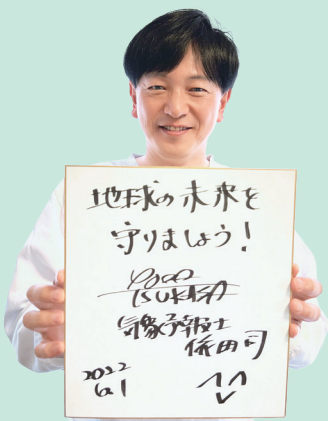 地球の未来を
守りましょう!
YODA
TSUKASA
気象予報士
依田 司
2022
6.1